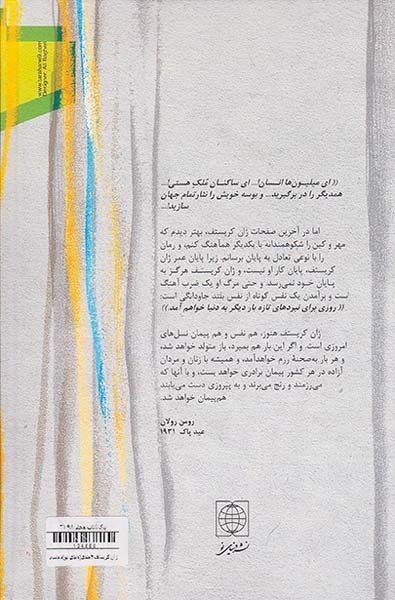 www.tarahanwili.com
Designer: Ali Bagheri
(( ای میلیون‌ها انسان!... ای ساکنان مُلکِ هستی!...
همدیگر را در برگیرید... و بوسه خویش را نثار تمام جهان
سازید!...
اما در آخرین صفحات ژان کریستف، بهتر دیدم که
مهر و کین را شکوهمندانه با یکدیگر هماهنگ کنم، و رمان
را با نوعی تعادل به پایان برسانم. زیرا پایان عمر ژان
کریستف، پایان کار او نیست، و ژان کریستف هرگز به
پایان خود نمی‌رسد و حتی مرگ او یک ضرب آهنگ
است و برآمدن یک نفس کوتاه از نفس بلند جاودانگی است:
(( روزی برای نبردهای تازه بار دیگر به دنیا خواهم آمد.))
ژان کریستف هنوز، هم نفس و هم پیمان نسل‌های
امروزی است. و اگر این بار هم بمیرد، باز متولد خواهد شد،
و هر بار به‌صحنهٔ رزم خواهدآمد، و همیشه با زنان و مردان
آزاده در هر کشور پیمان برادری خواهد بست، و با آنها که
می‌رزمند و رنج می‌برند و به پیروزی دست می‌یابند
هم‌پیمان خواهد شد.
رومن رولان
عید پاک ۱۹۳۱
نشر دنیای نو
ژان کریستف